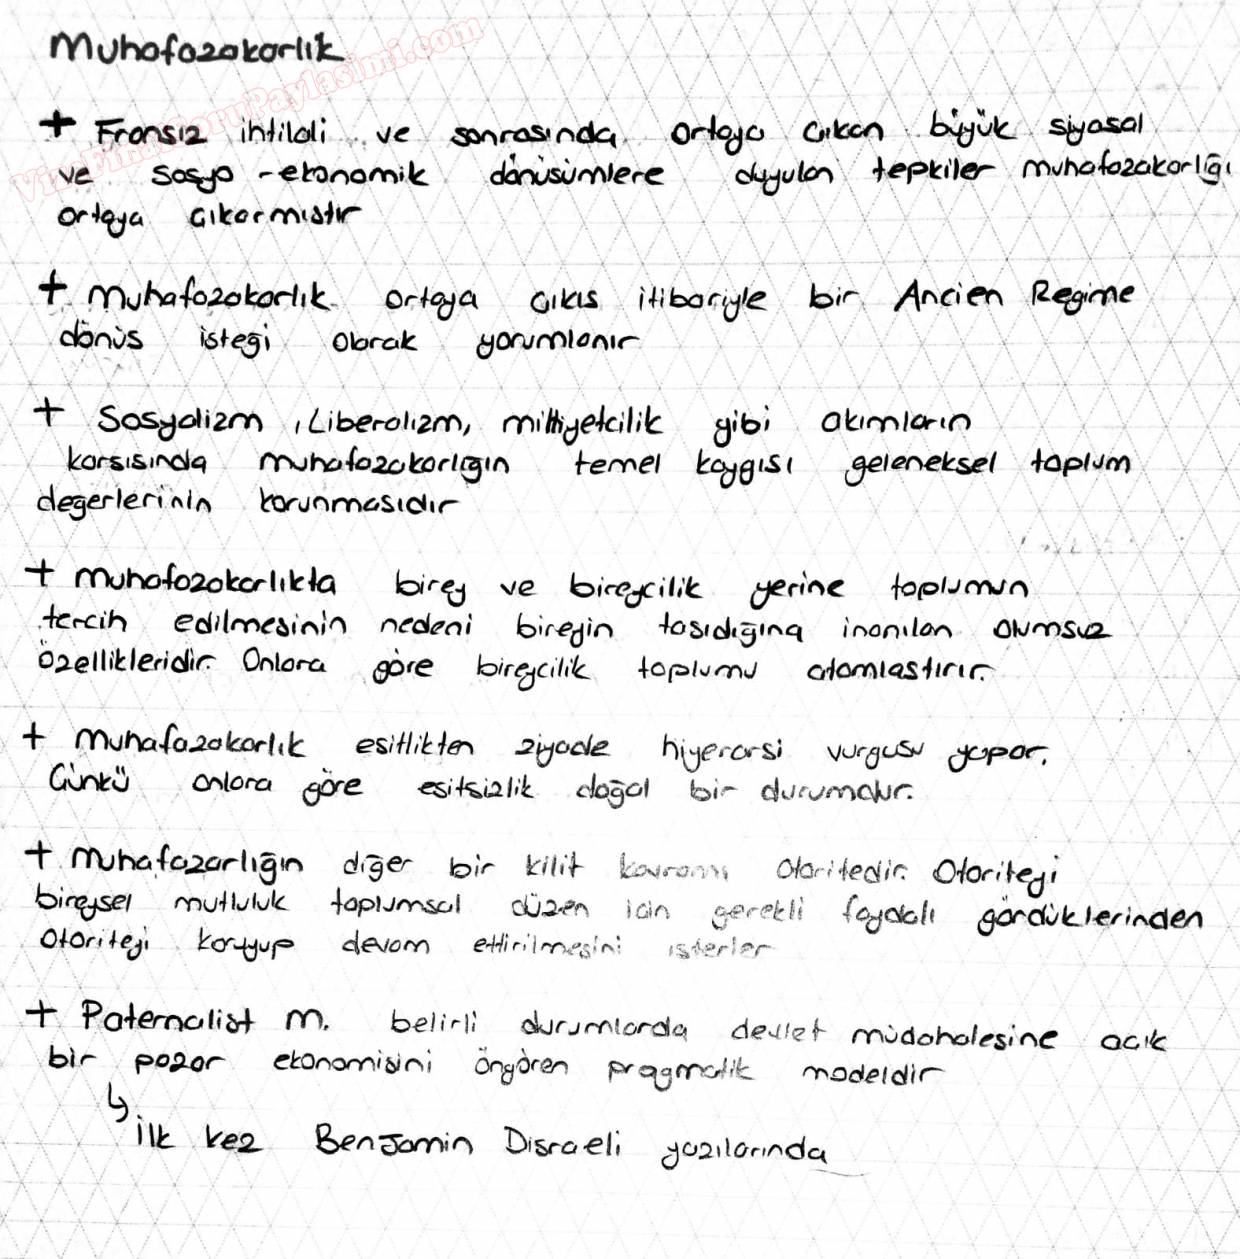 Muhafazakarlık
VizeFinalSoruPaylasimi.com
+ Fransız ihtilali ve sonrasında ortaya çıkan büyük siyasal
ve sosyo-ekonomik dönüşümlere duyulan tepkiler muhafazakarlığı
ortaya çıkarmıştır
+ Muhafazakarlık ortaya çıkış itibariyle bir Ancien Regime
dönüş isteği olarak yorumlanır
+ Sosyalizm, Liberalizm, milliyetçilik gibi akımların
karşısında muhafazakarlığın temel kaygısı geleneksel toplum
değerlerinin korunmasıdır
+ Muhafazakarlıkta birey ve bireycilik yerine toplumun
tercih edilmesinin nedeni bireyin taşıdığına inanılan olumsuz
özellikleridir. Onlara göre bireycilik toplumu atomlaştırır.
+ Muhafazakarlık eşitlikten ziyade hiyerarşi vurgusu yapar.
Çünkü onlara göre eşitsizlik doğal bir durumdur.
+ Muhafazarlığın diğer bir kilit kavramı otoritedir. Otoriteyi
bireysel mutluluk toplumsal düzen için gerekli faydalı gördüklerinden
otoriteyi koruyup devam ettirilmesini isterler
+ Paternalist m. belirli durumlarda devlet müdahalesine açık
bir pazar ekonomisini öngören pragmatik modeldir
↳ İlk kez Benjamin Disraeli yazılarında